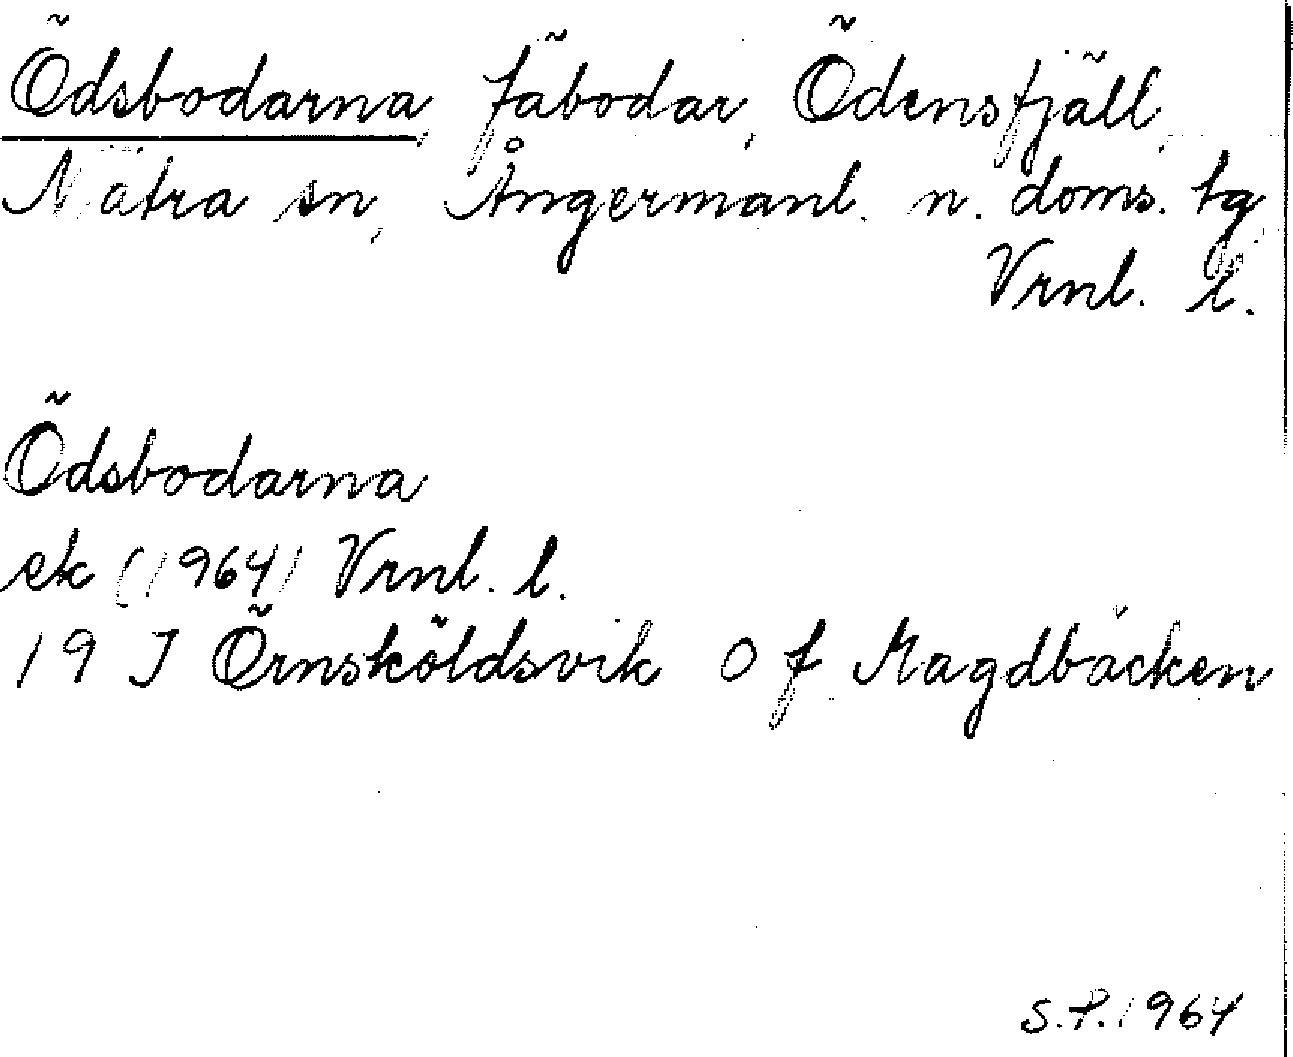 Ödsbodarna, fäbodar, Ödensfjäll,
Nätra sn, Ångermanl. n. doms. tg,
Vrnl. l.
Ödsbodarna
ek (1964) Vrnl. l.
19 J Örnsköldsvik 0 f Magdbäcken
S.P. 1964